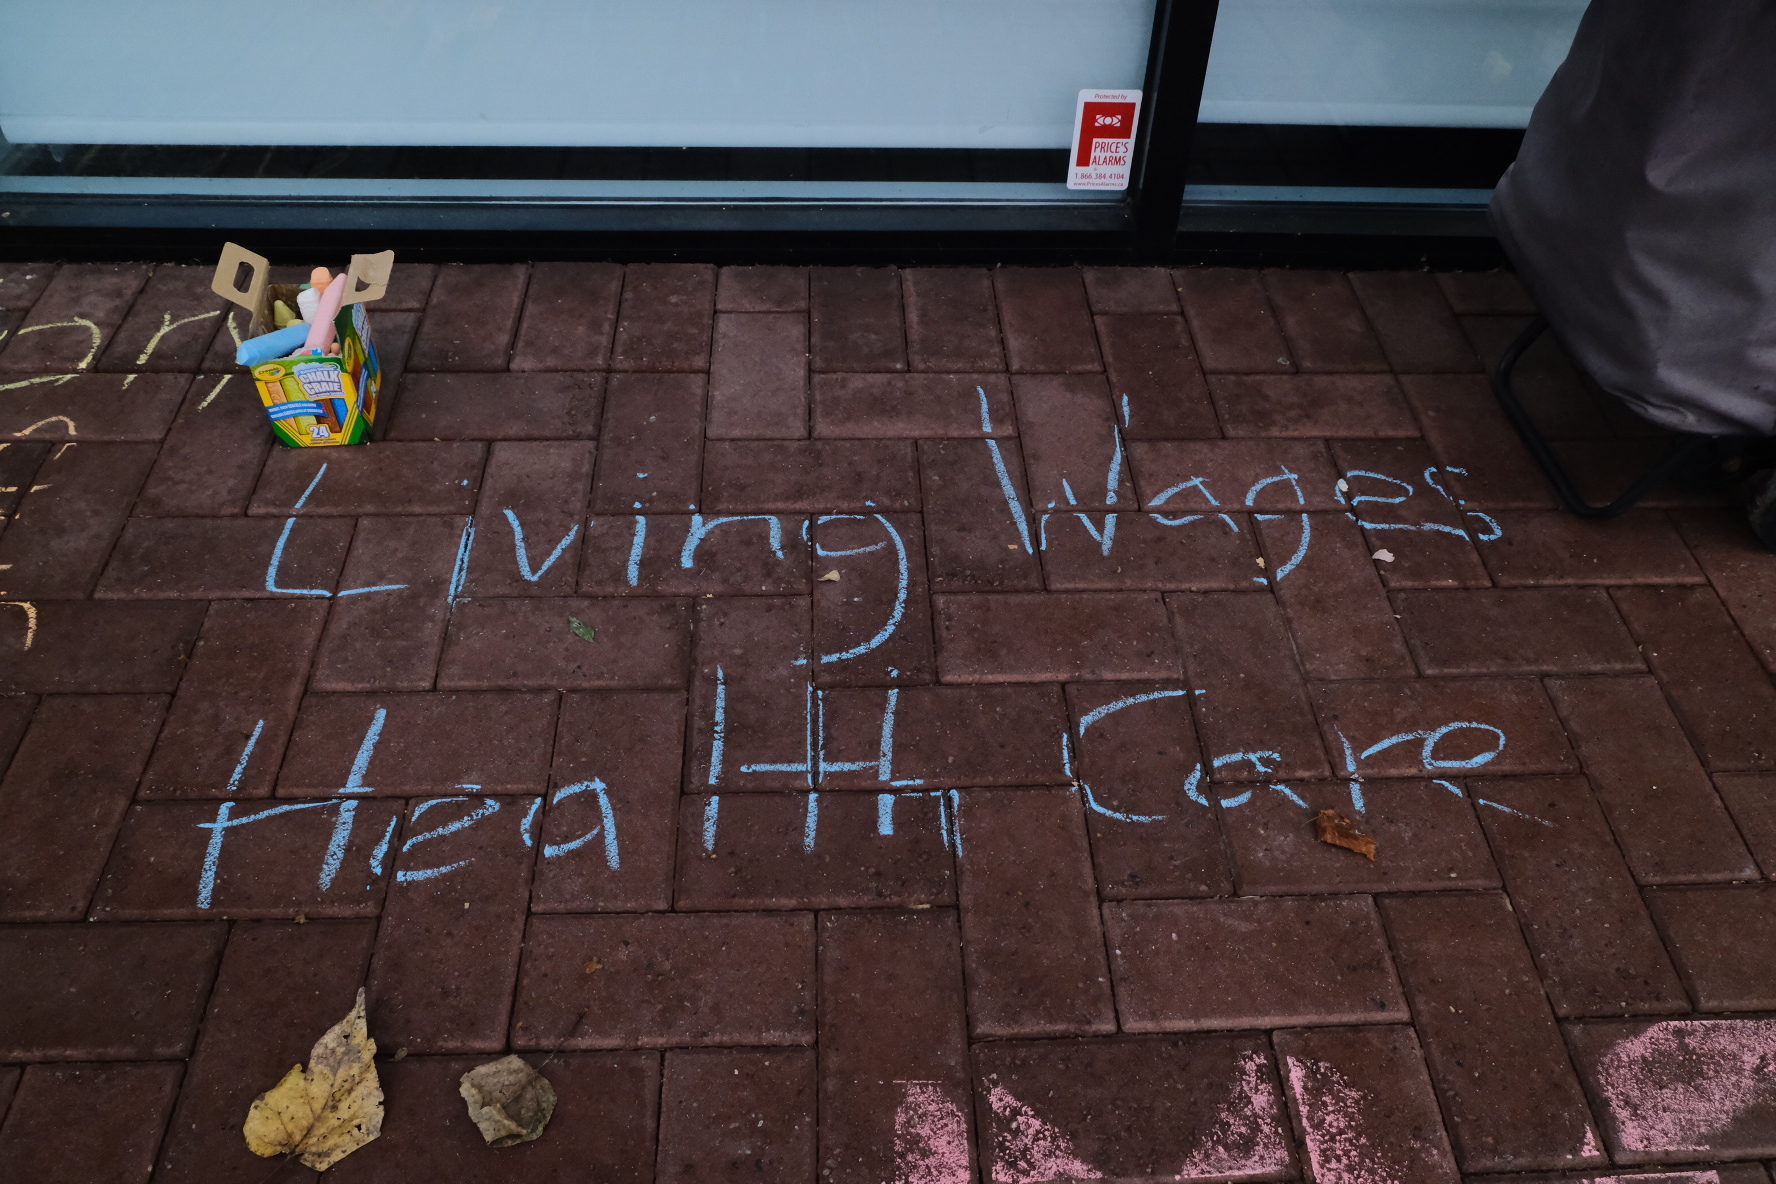 Protected by
PRICE'S
ALARMS
1.866.384.4104
www.PricesAlarms.ca
Crayola
CHALK
CRAIE
24
Living Wages
Health Care